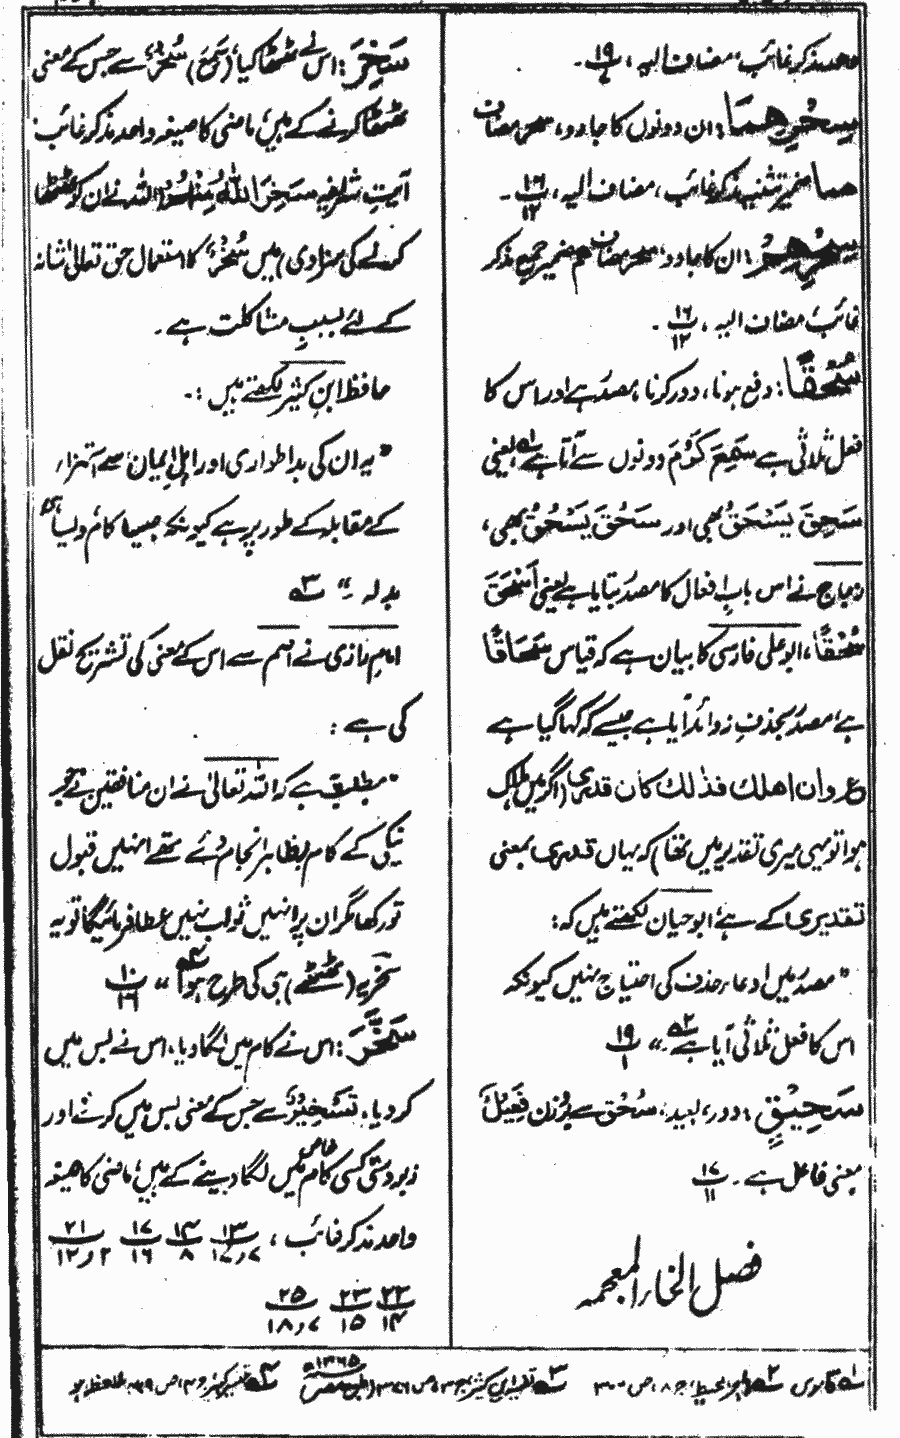 واحد مذکر غائب، مضاف الیہ، ۱۹/۷ -
سِحْرِھِمَا: ان دونوں کا جادو، سحر مضاف
ھما ضمیر تثنیہ مذکر غائب، مضاف الیہ، ۱۶/۱۲ -
سِحْرِھِمْ: ان کا جادو، سحر مضاف ھم ضمیر جمع مذکر
غائب، مضاف الیہ، ۱۶/۱۲ -
سُحْقًا: دفع ہونا، دور کرنا، مصدر ہے اور اس کا
فعل ثلاثی سے سَمِعَ کَرُمَ دونوں سے آتا ہے یعنی
سَحِقَ یَسْحَقُ بھی اور سَحُقَ یَسْحُقُ بھی،
زجاج نے اس باب افعال کا مصدر بتایا ہے یعنی اَسْحَقَ
سُحْقًا، ابو علی فارسی کا بیان ہے کہ قیاس سَحَاقًا
ہے، مصدر بحذفِ زوائد آیا ہے جیسے کہ کہا گیا ہے
ع وان اھلك فذٰلك كان قدری (اگر میں ہلاک
ہوا تو یہی میری تقدیر میں تھا) کہ یہاں قدری بمعنی
تقدیری کے ہے، ابو حیان لکھتے ہیں کہ:
" مصدر میں ادعاء حذف کی احتیاج نہیں کیونکہ
اس کا فعل ثلاثی آیا ہے " ۱۹/۱
سَحِیْقٍ: دور، بعید، سُحْق سے بروزن فَعِیْلٌ
بمعنی فاعل ہے - ۱۷/۱۱
فصل الخاء المعجمہ
سَخِرَ: اس نے ٹھٹھا کیا، (سَمِعَ) سُخْرٌ سے جس کے معنی
ٹھٹھا کرنے کے ہیں، ماضی کا صیغہ واحد مذکر غائب،
آیتِ شریفہ سَخِرَ اللّٰهُ مِنْهُمْ (اللہ نے ان کو ٹھٹھا
کرنے کی سزا دی) میں سُخْرٌ کا استعمال حق تعالیٰ شانہ
کے لئے بسببِ مشاکلت ہے -
حافظ ابن کثیر لکھتے ہیں :-
" یہ ان کی بد اطواری اور اہلِ ایمان سے استہزاء
کے مقابلہ کے طور پر ہے کیونکہ جیسا کام ویسا ہی
بدلہ - " ۳ے
امام رازی نے اصم سے اس کے معنی کی تشریح نقل
کی ہے :
" مطلب یہ ہے کہ اللہ تعالیٰ نے ان منافقین سے جو
نیکی کے کام بظاہر انجام دئے تھے انہیں قبول
تو رکھا مگر ان پر انہیں ثواب نہیں عطا فرمائیگا تو یہ
سخریہ (ٹھٹھے) ہی کی طرح ہوا " ۱۰/۱۶
سَخَّرَ: اس نے کام میں لگا دیا، اس نے بس میں
کر دیا، تَسْخِیْرٌ سے جس کے معنی بس میں کرنے اور
زبردستی کسی خاص کام میں لگا دینے کے ہیں، ماضی کا صیغہ
واحد مذکر غائب، ۱۳/۷ و ۱۷ ۱۴/۸ ۱۷/۱۶ ۲۱/۲ و ۱۲
۲۲/۱۴ ۲۳/۱۵ ۲۵/۷ و ۱۸
۱ے قاموس ۲ے البحر المحیط، ج ۸، ص ۳۰۰ ۳ے تفسیر ابن کثیر، ج ۲، ص ۳۷۶ (طبع مصر ۱۳۶۵ھ) ۴ے تفسیر کبیر،